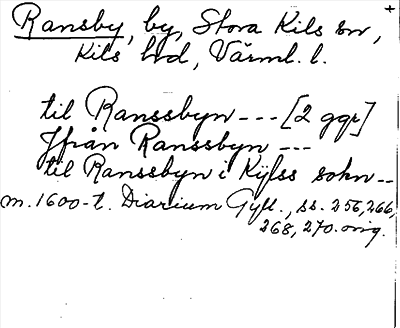 Ransby, by, Stora Kils sn,
Kils hrd, Värml. l.
til Ranssbyn --- [2 ggr]
Jfrån Ranssbyn ---
til Ranssbyn i Kijlss sokn --
m. 1600-t. Diarium Gyll., ss. 256, 266,
268, 270. orig.